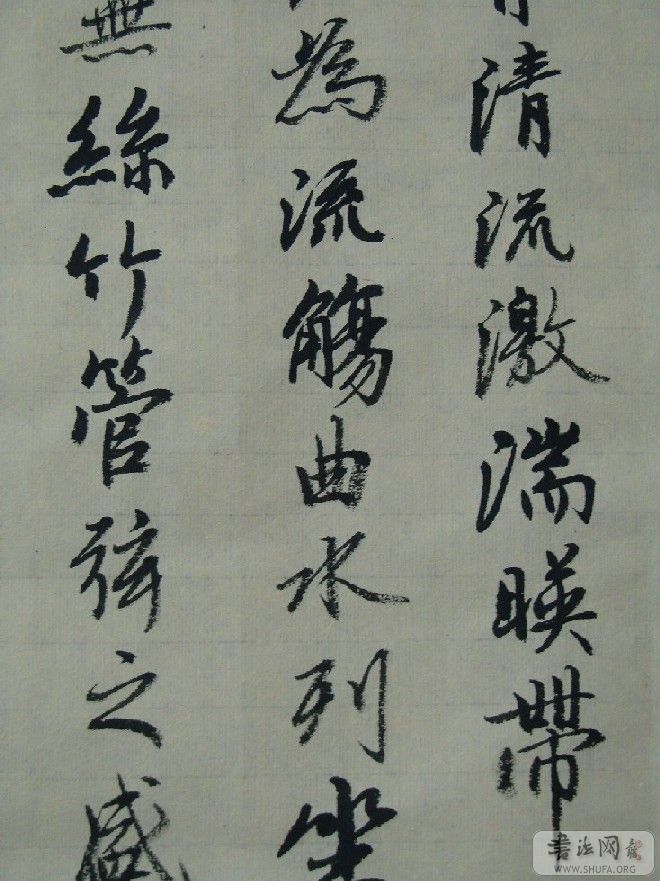 清流激湍暎帶
為流觴曲水列坐
無絲竹管弦之盛
书法网
WWW.SHUFA.ORG